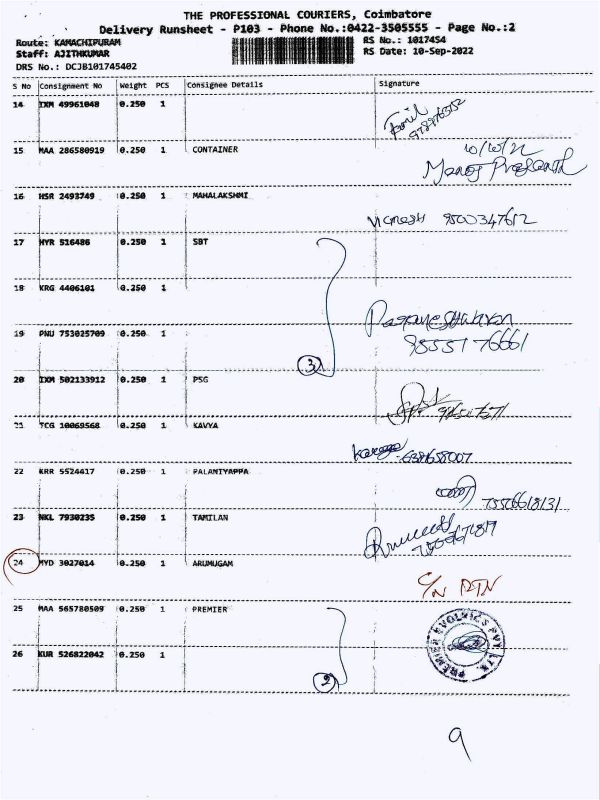 THE PROFESSIONAL COURIERS, Coimbatore
Delivery Runsheet - P103 - Phone No.:0422-3505555 - Page No.:2
Route: KAMACHIPURAM RS No.: 1017454
Staff: AJITHKUMAR RS Date: 10-Sep-2022
DRS No.: DCJB101745402
S No Consignment No Weight PCS Consignee Details Signature
14 IXM 49961048 0.250 1
15 MAA 286580919 0.250 1 CONTAINER
Manoj Prasanth
16 HSR 2493749 0.250 1 MAHALAKSHMI
Vignesh 9500347612
17 MYR 516486 0.250 1 SBT
18 KRG 4406101 0.250 1
Parameshwaran
19 PNU 753025709 0.250 1
9855176661
3
20 IXM 502133912 0.250 1 PSG
21 TCG 10069568 0.250 1 KAVYA
22 KRR 5524417 0.250 1 PALANIYAPPA
23 NKL 7930235 0.250 1 TAMILAN
24 MYD 3027014 0.250 1 ARUMUGAM
C/N RTN
25 MAA 565780509 0.250 1 PREMIER
PREMIER EVOLVICS PVT. LTD.
26 KUR 526822042 0.250 1
2
9